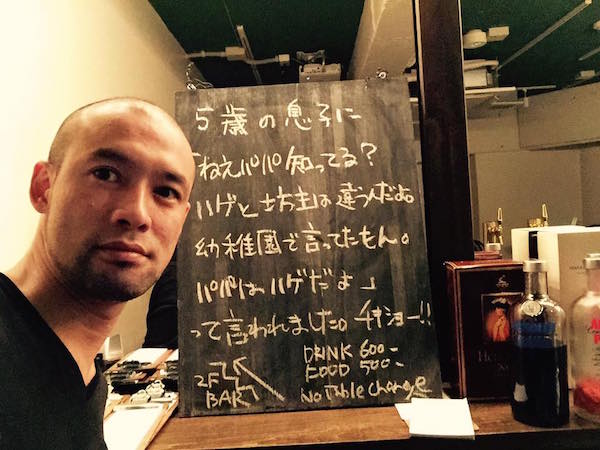 5歳の息子に
「ねえパパ知ってる?
ハゲと坊主は違うんだよ。
幼稚園で言ってたもん。
パパはハゲだよ」
って言われました。チキショー!!
2F
BAR
DRINK 600-
FOOD 500-
No Table Charge